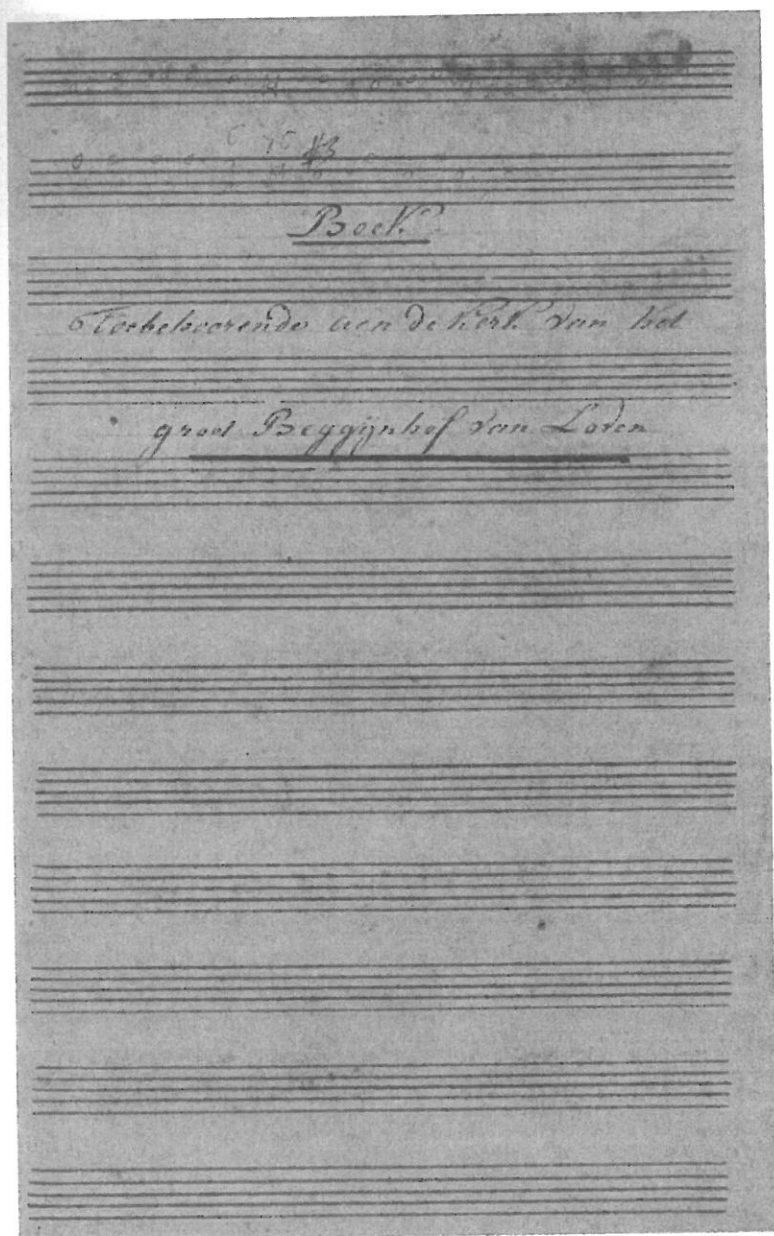 Boek
Toebehoorende aen de Kerk van het
groot Beggijnhof van Loven